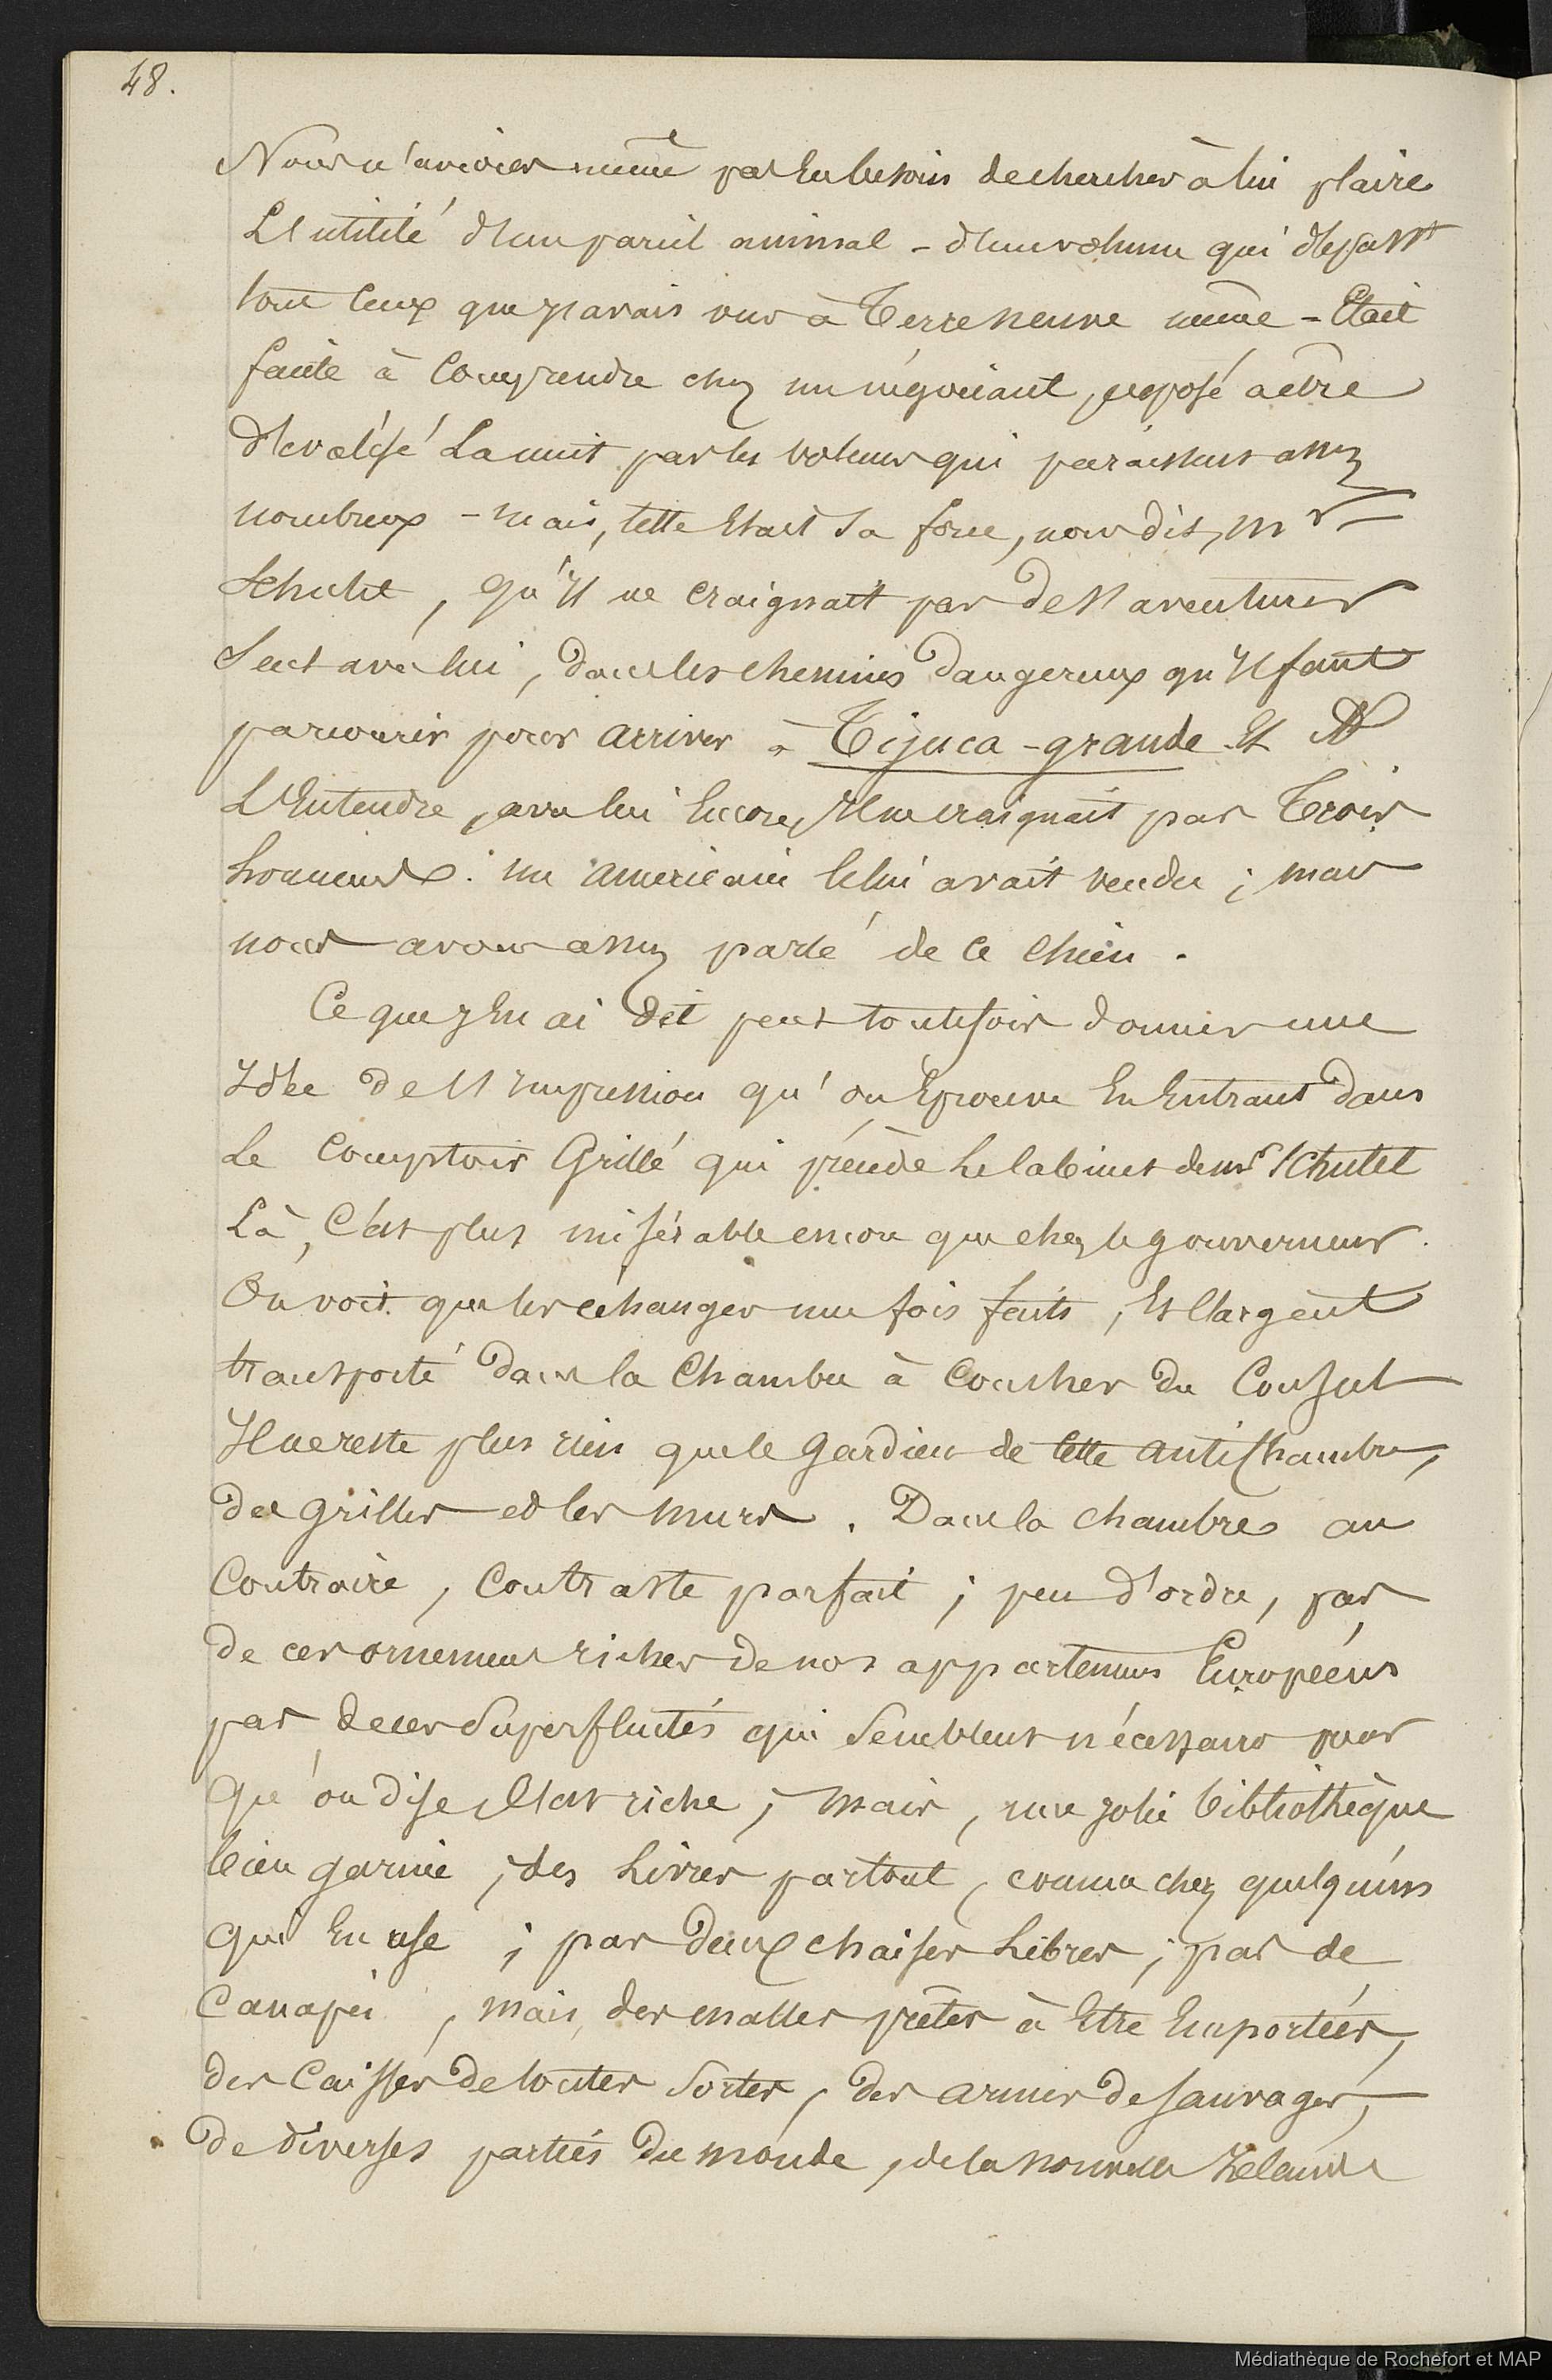 48.
Nous n'avions même pas eu besoin de chercher à lui plaire
L'utilité d'un pareil animal - d'un volume qui dépasst
tout ceux que j'avais vus à Terreneuve même - Etait
facile à Comprendre chez un négociant, exposé a être
dévalisé La nuit par les voleurs qui paraissent assez
nombreux - mais, telle était Sa force, nous dit, Mr
Schutet, qu'il ne craignait pas de s'aventurer
Seul avec lui, dans les chemins dangereux qu'il faut
parcourir pour arriver à Tijuca-grande. Et A
L'Entendre, avec lui Encore, Il ne craignait pas Trois
hommes. un americain le lui avait vendu ; mais
nous avons assez parlé de ce Chien.
Ce que j'En ai dit peut toutefois donner une
Idée de l'Impression qu'on Eprouve En Entrant dans
Le Comptoir Grillé qui précède Le Cabinet de Mr Schutet
Là, C'est plus misérable encore que chez le gouverneur.
On voit que les échanges une fois faits, Et l'argent
transporté dans la Chambre à Coucher du Consul
Il ne reste plus rien que le Gardien de Cette antichambre,
des grilles et les murs. Dans la chambre au
Contraire, Contraste parfait ; peu d'ordre, pas
de ces ornemens riches de nos appartemens Européens
pas de ces Superfluités qui Semblent nécessaires pour
qu'on dise, C'est riche ; Mais, une jolie bibliothèque
bien garnie, des Livres partout, comme chez quelqu'uns
qui En use ; pas deux chaises Libres ; pas de
Canapés, mais, des malles prêtes à Etre Emportées,
des Caisses de toutes Sortes, des armes de Sauvages,
de diverses parties du monde, de la nouvelle Zelande
Médiathèque de Rochefort et MAP